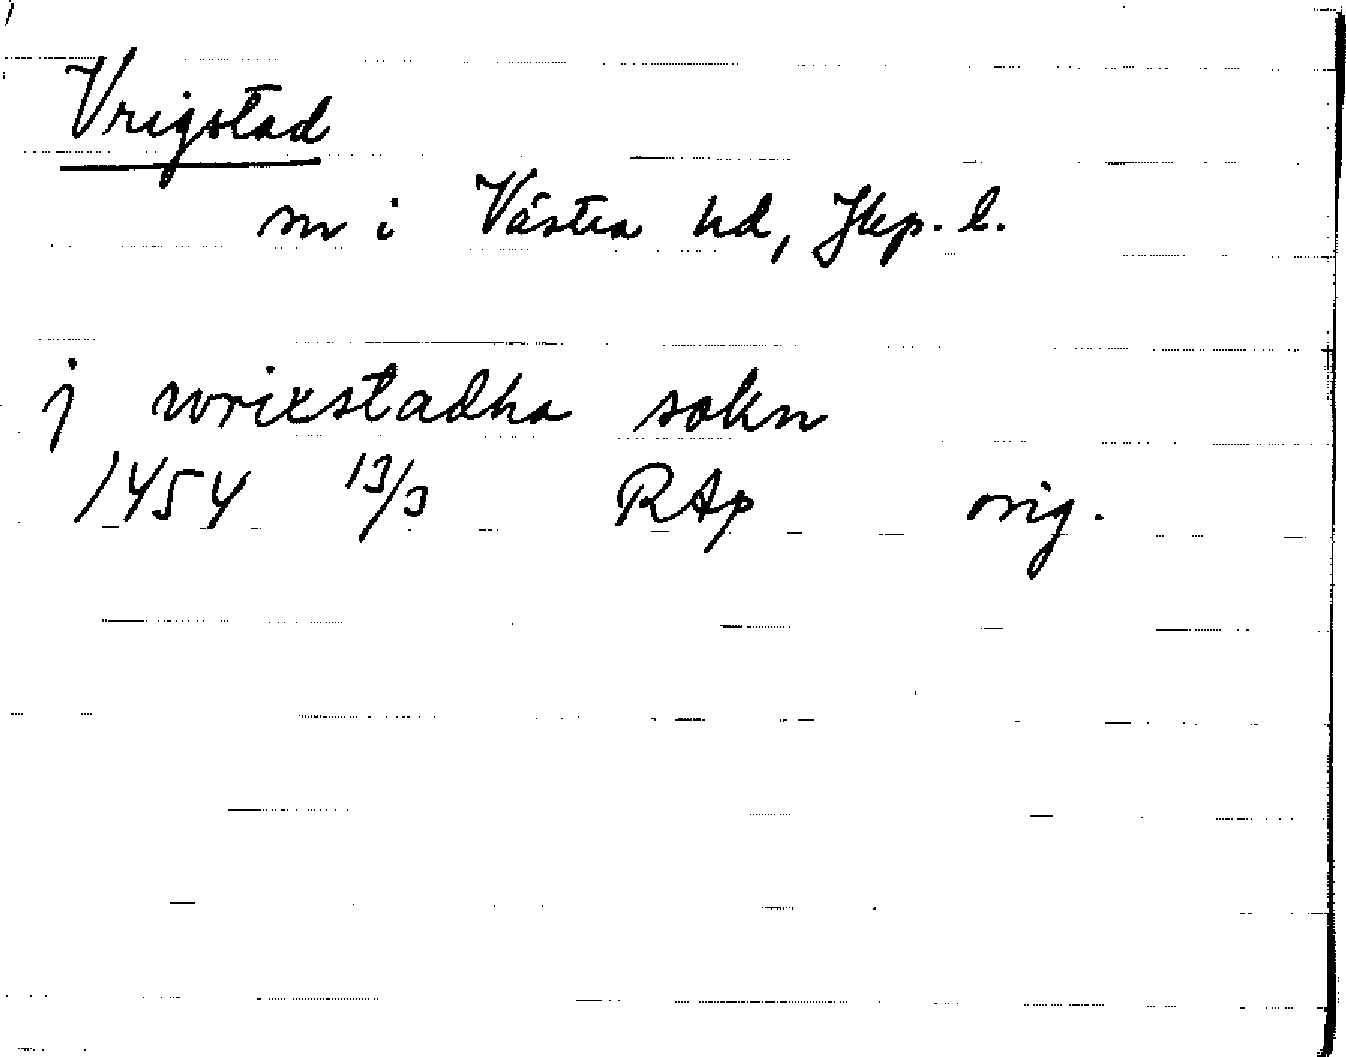 Vrigstad
sn i Västra hd, Jkp. l.
j wrixstadha sokn
1454 13/3 RAp orig.